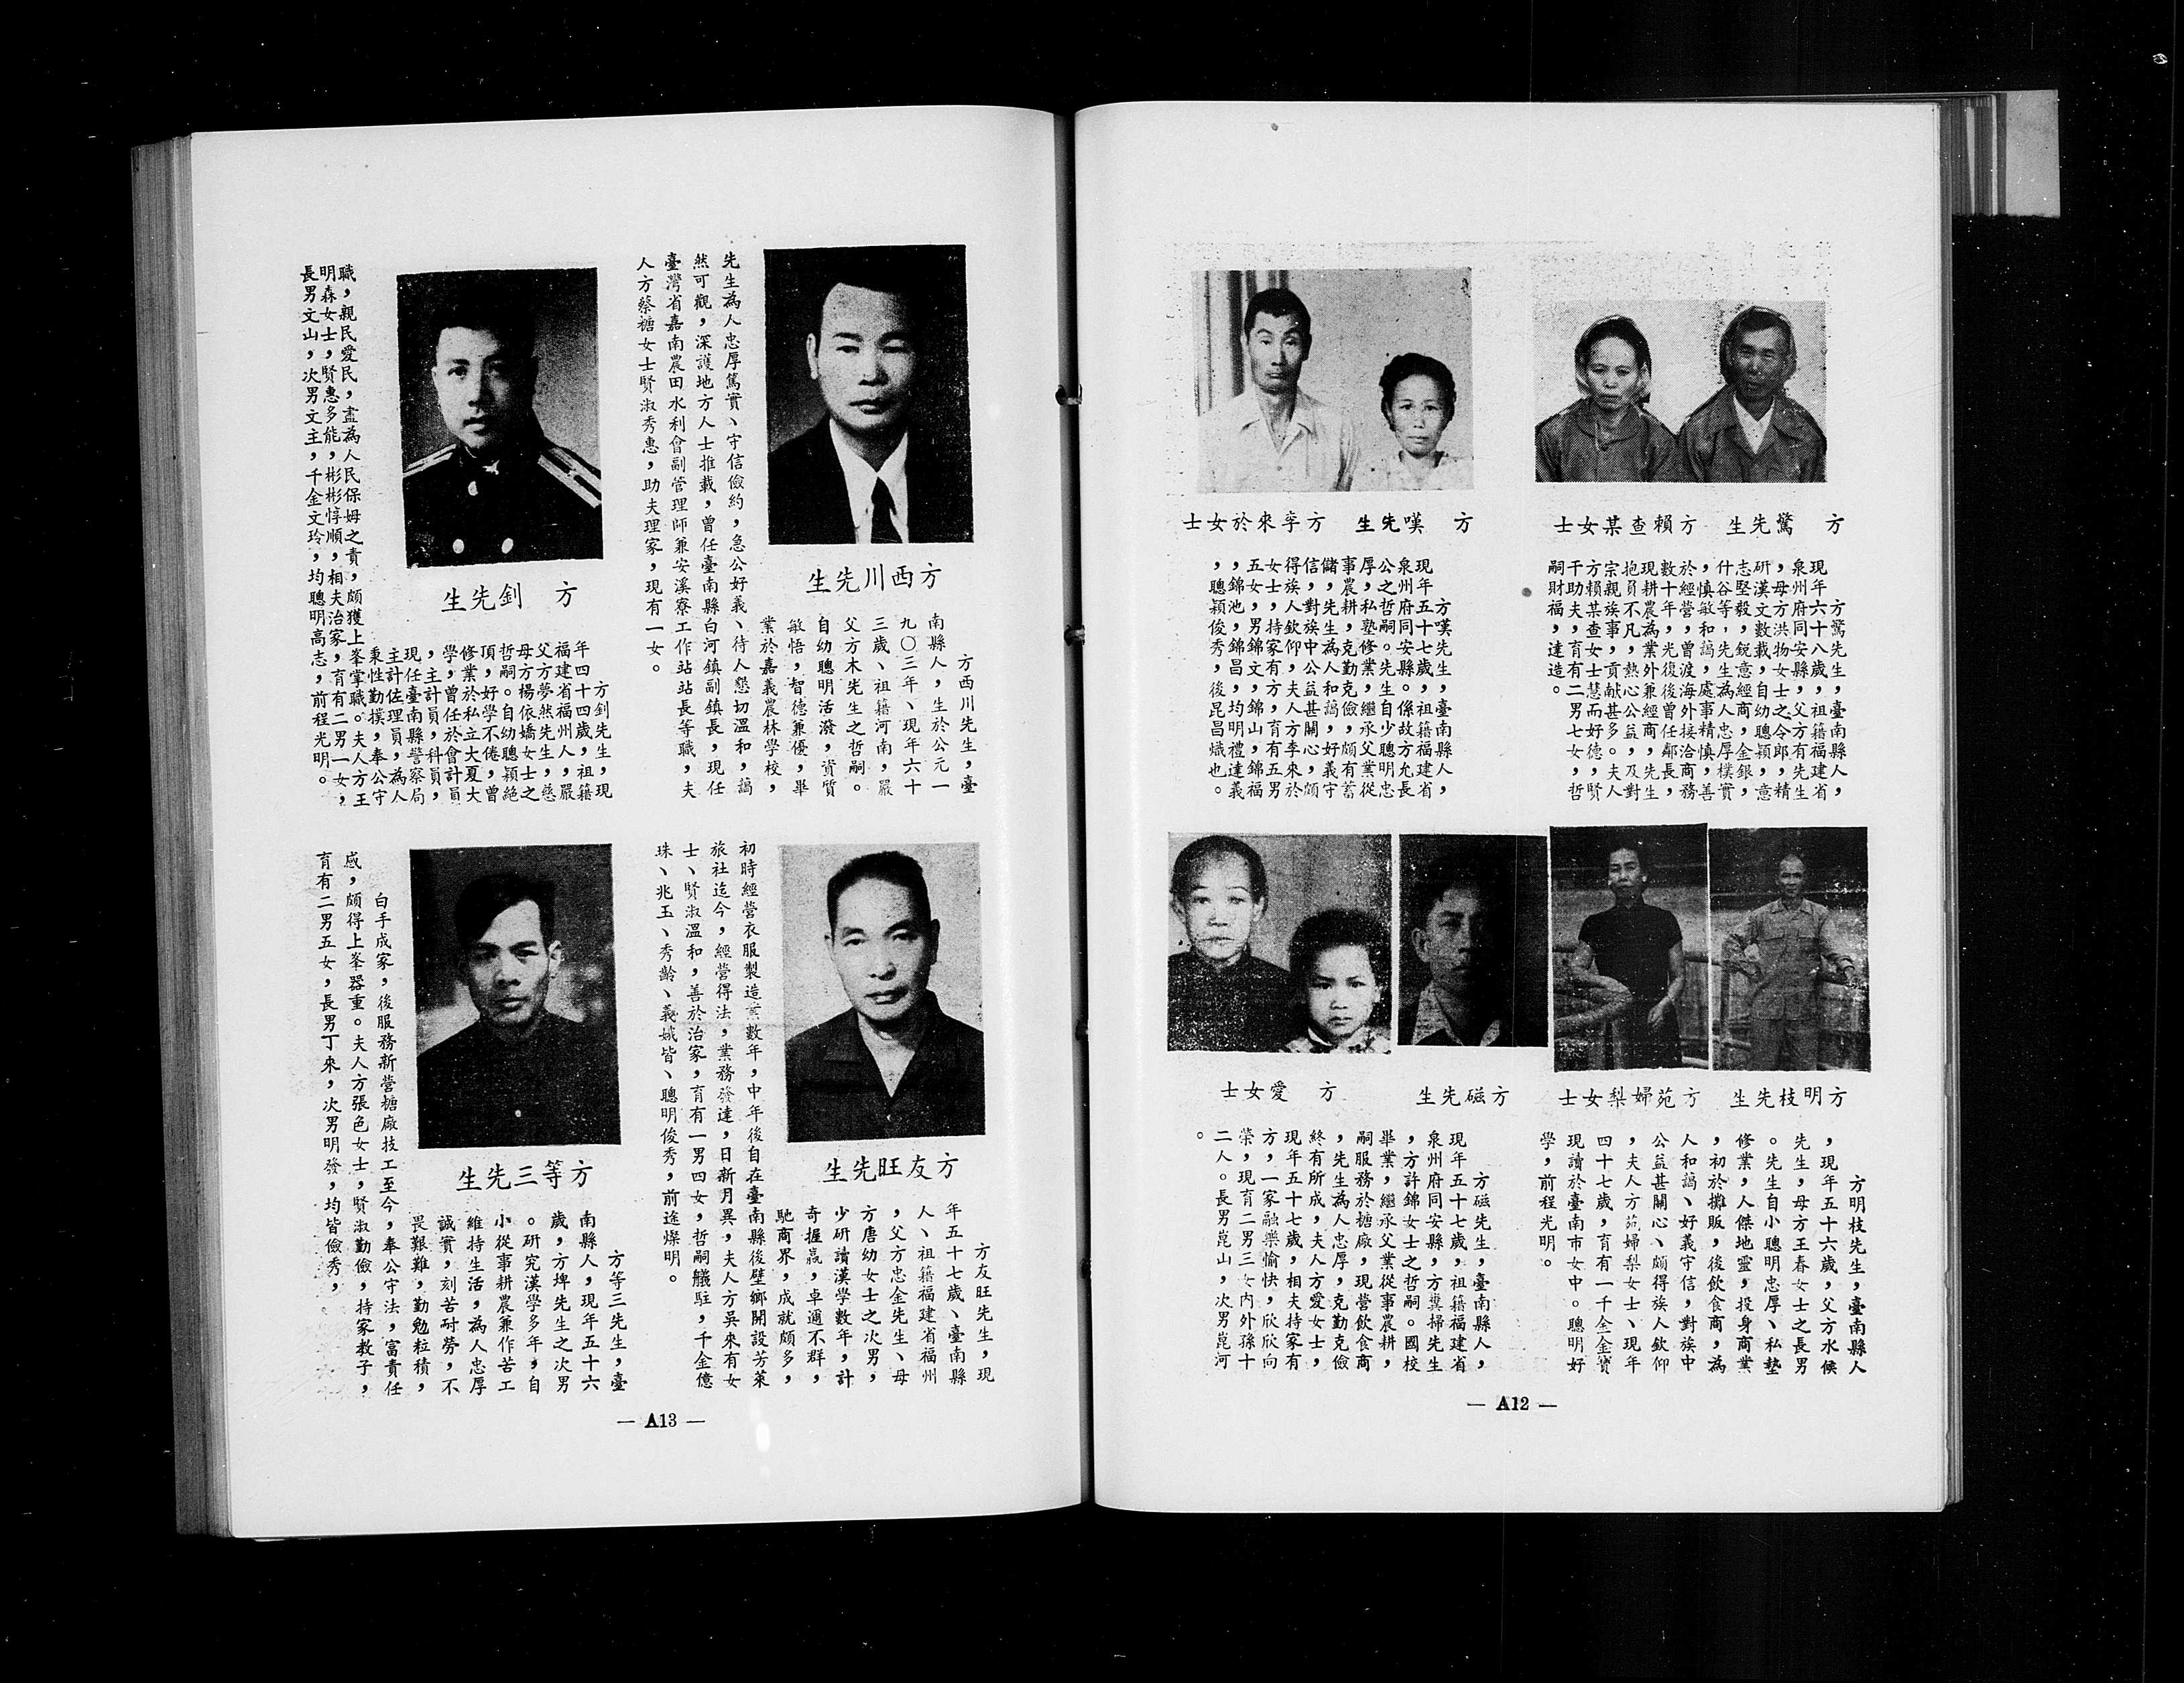 方　驚先生　方賴查某女士
方驚先生，臺南縣人，
現年六十八歲，祖籍福建省
泉州府同安縣，父方有先生
，母方洪物女士之令郎，精
研漢文數載，自幼聰穎，意
志堅毅，銳意經商，金銀，
什谷等，先生為人忠厚樸實
，慎敏和謁，處事精慎，善
於經營，曾渡海外接洽商務
數十年，光復後曾任鄰長，
現耕農為業外兼經商，先生
抱員不凡，熱心公益，及對
宗親族事，貢献甚多。夫人
方賴某查女士慧而好德，賢
干助夫，育有二男七女，哲
嗣財福，達造。
方　嘆先生　方李來於女士
方嘆先生，臺南縣人，
現年五十七歲，祖籍福建省，
泉州府同安縣。係故方允長
公之哲嗣。先生自少聰明忠
厚，私塾修業，繼承父業從
事農耕，克勤克儉，頗有蓄
儲，先生為人和謁，好義守
信，對族中公益甚關心，頗
得族人欽仰，夫人方李來於
女士，持家有方，育有五男
五女，男錦文，錦山，錦福
，錦池，錦昌，均明禮達義
，聰穎俊秀，後昆昌熾也。
方明枝先生　方苑婦梨女士
方明枝先生，臺南縣人
，現年五十六歲，父方水候
先生，母方王春女士之長男
。先生自小聰明忠厚、私塾
修業，人傑地靈，投身商業
，初於攤販，後飲食商，為
人和謁、好義守信，對族中
公益甚關心、頗得族人欽仰
，夫人方苑婦梨女士、現年
四十七歲，育有一千金金寶
現讀於臺南市女中。聰明好
學，前程光明。
方磁先生　方　愛女士
方磁先生，臺南縣人，
現年五十七歲，祖籍福建省
泉州府同安縣，方糞掃先生
，方許錦女士之哲嗣。國校
畢業，繼承父業從事農耕，
嗣服務於糖廠，現營飲食商
，先生為人忠厚，克勤克儉
終有所成，夫人方愛女士，
現年五十七歲，相夫持家有
方，一家融樂愉快，欣欣向
榮，現育二男三女內外孫十
二人。長男崑山，次男崑河
。
— A12 —
方西川先生
方西川先生，臺
南縣人，生於公元一
九〇三年、現年六十
三歲、祖籍河南，嚴
父方木先生之哲嗣。
自幼聰明活潑，資質
敏悟，智德兼優，畢
業於嘉義農林學校，
先生為人忠厚篤實、守信儉約，急公好義、待人懇切溫和，謁
然可觀，深護地方人士推載，曾任臺南縣白河鎮副鎮長，現任
臺灣省嘉南農田水利會副管理師兼安溪寮工作站站長等職，夫
人方蔡糖女士賢淑秀惠，助夫理家，現有一女。
方　釗先生
方釗先生，現
年四十四歲，祖籍
福建省福州人，嚴
父方夢然先生，慈
母方楊依嬌女士之
哲嗣。自幼聰穎絕
頂，好學不倦，曾
修業於私立大夏大
學，曾任於會計員
，主計員，科員，
現任臺南縣警察局
主計佐理員，為人
秉性勤樸，奉公守
職，親民愛民，盡為人民保姆之責，頗獲上峯掌職。夫人方王
明森女士，賢惠多能，彬彬惇順，相夫治家，育有二男一女，
長男文山，次男文主，千金文玲，均聰明高志，前程光明。
方友旺先生
方友旺先生，現
年五十七歲、臺南縣
人、祖籍福建省福州
，父方忠金先生、母
方唐幼女士之次男，
少研讀漢學數年，計
奇握贏，卓邇不群，
馳商界，成就頗多，
初時經營衣服製造業數年，中年後自在臺南縣後壁鄉開設芳萊
旅社迄今，經營得法，業務發達，日新月異，夫人方吳來有女
士、賢淑溫和，善於治家，育有一男四女，哲嗣艤駐，千金億
珠、兆玉、秀齡、義娥皆、聰明俊秀，前途燦明。
方等三先生
方等三先生，臺
南縣人，現年五十六
歲，方埤先生之次男
。研究漢學多年，自
小從事耕農兼作苦工
維持生活，為人忠厚
誠實，刻苦耐勞，不
畏艱難，勤勉粒積，
白手成家，後服務新營糖廠技工至今，奉公守法，富責任
感，頗得上峯器重。夫人方張色女士，賢淑勤儉，持家教子，
育有二男五女，長男丁來，次男明發，均皆儉秀，
— A13 —